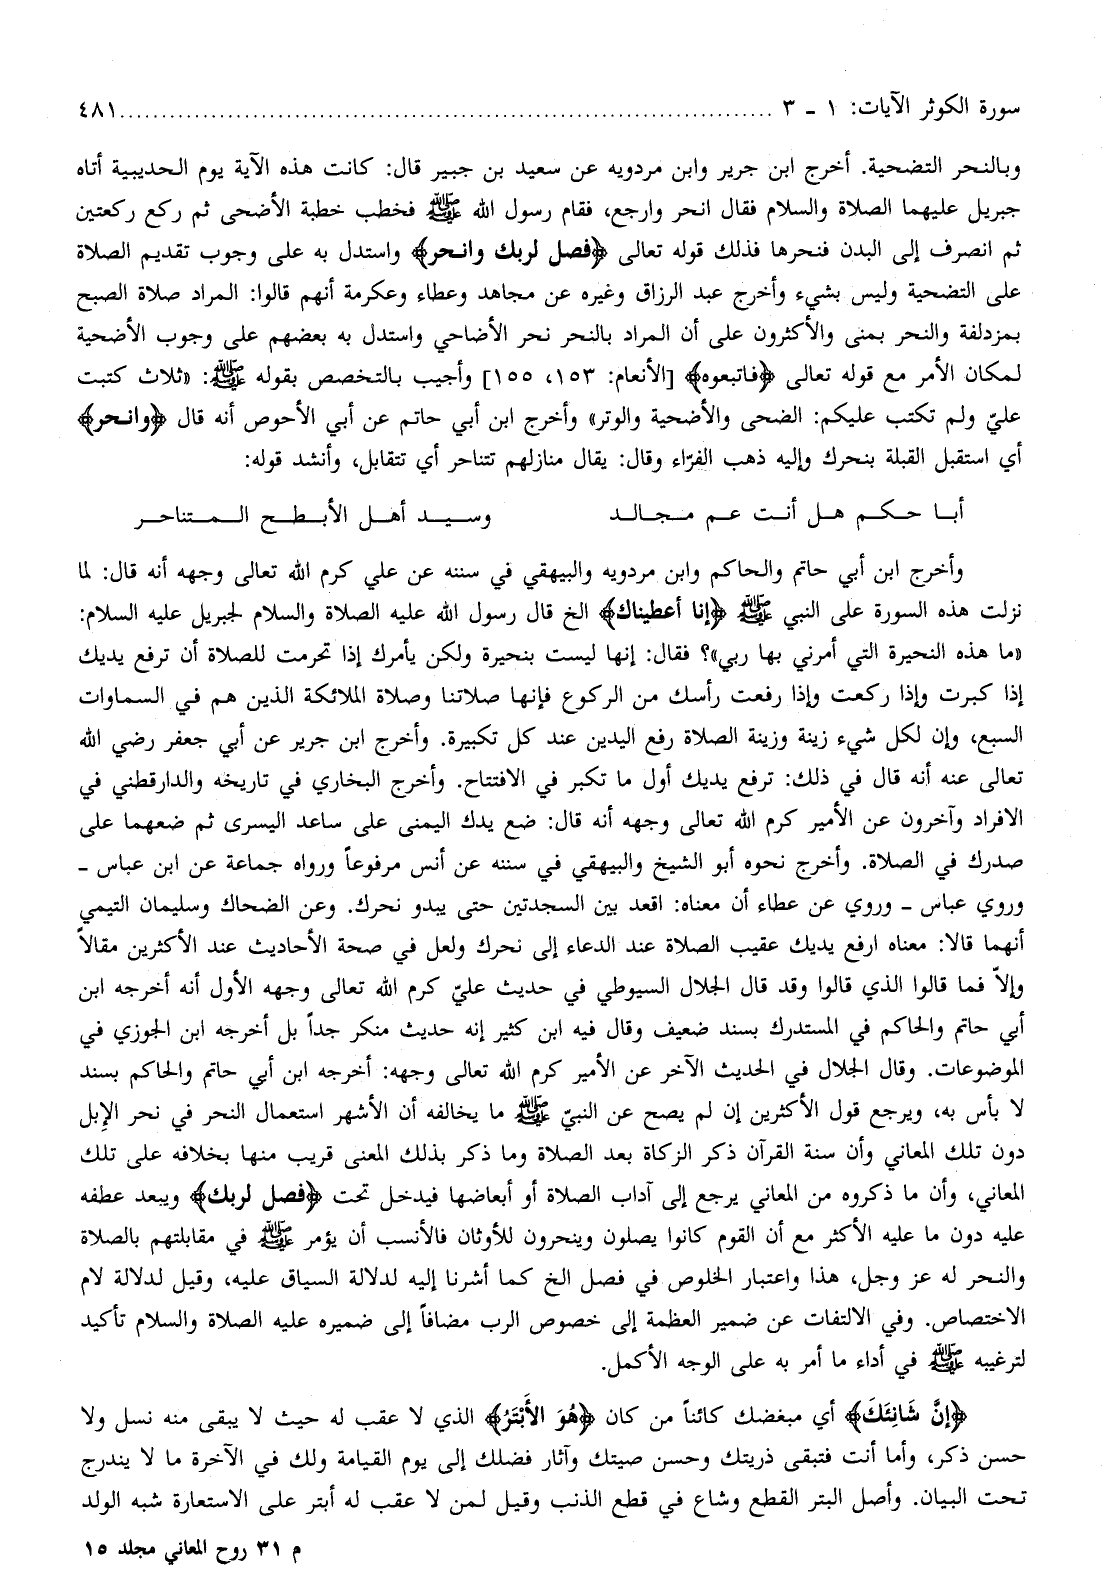 سورة الكوثر الآيات: ١ ـ ٣ ........................................................................... ٤٨١
وبالنحر التضحية. أخرج ابن جرير وابن مردويه عن سعيد بن جبير قال: كانت هذه الآية يوم الحديبية أتاه
جبريل عليهما الصلاة والسلام فقال انحر وارجع، فقام رسول الله ﷺ فخطب خطبة الأضحى ثم ركع ركعتين
ثم انصرف إلى البدن فنحرها فذلك قوله تعالى ﴿فصل لربك وانحر﴾ واستدل به على وجوب تقديم الصلاة
على التضحية وليس بشيء وأخرج عبد الرزاق وغيره عن مجاهد وعطاء وعكرمة أنهم قالوا: المراد صلاة الصبح
بمزدلفة والنحر بمنى والأكثرون على أن المراد بالنحر نحر الأضاحي واستدل به بعضهم على وجوب الأضحية
لمكان الأمر مع قوله تعالى ﴿فاتبعوه﴾ [الأنعام: ١٥٣، ١٥٥] وأجيب بالتخصص بقوله ﷺ: «ثلاث كتبت
عليّ ولم تكتب عليكم: الضحى والأضحية والوتر» وأخرج ابن أبي حاتم عن أبي الأحوص أنه قال ﴿وانحر﴾
أي استقبل القبلة بنحرك وإليه ذهب الفرّاء وقال: يقال منازلهم تتناحر أي تتقابل، وأنشد قوله:
أبـا حـكـم هـل أنـت عـم مـجـالـد وسـيـد أهـل الأبـطـح الـمـتـنـاحـر
وأخرج ابن أبي حاتم والحاكم وابن مردويه والبيهقي في سننه عن علي كرم الله تعالى وجهه أنه قال: لما
نزلت هذه السورة على النبي ﷺ ﴿إنا أعطيناك﴾ الخ قال رسول الله عليه الصلاة والسلام لجبريل عليه السلام:
«ما هذه النحيرة التي أمرني بها ربي»؟ فقال: إنها ليست بنحيرة ولكن يأمرك إذا تحرمت للصلاة أن ترفع يديك
إذا كبرت وإذا ركعت وإذا رفعت رأسك من الركوع فإنها صلاتنا وصلاة الملائكة الذين هم في السماوات
السبع، وإن لكل شيء زينة وزينة الصلاة رفع اليدين عند كل تكبيرة. وأخرج ابن جرير عن أبي جعفر رضي الله
تعالى عنه أنه قال في ذلك: ترفع يديك أول ما تكبر في الافتتاح. وأخرج البخاري في تاريخه والدارقطني في
الافراد وآخرون عن الأمير كرم الله تعالى وجهه أنه قال: ضع يدك اليمنى على ساعد اليسرى ثم ضعهما على
صدرك في الصلاة. وأخرج نحوه أبو الشيخ والبيهقي في سننه عن أنس مرفوعاً ورواه جماعة عن ابن عباس ـ
وروي عباس ـ وروي عن عطاء أن معناه: اقعد بين السجدتين حتى يبدو نحرك. وعن الضحاك وسليمان التيمي
أنهما قالا: معناه ارفع يديك عقيب الصلاة عند الدعاء إلى نحرك ولعل في صحة الأحاديث عند الأكثرين مقالاً
وإلاّ فما قالوا الذي قالوا وقد قال الجلال السيوطي في حديث عليّ كرم الله تعالى وجهه الأول أنه أخرجه ابن
أبي حاتم والحاكم في المستدرك بسند ضعيف وقال فيه ابن كثير إنه حديث منكر جداً بل أخرجه ابن الجوزي في
الموضوعات. وقال الجلال في الحديث الآخر عن الأمير كرم الله تعالى وجهه: أخرجه ابن أبي حاتم والحاكم بسند
لا بأس به، ويرجع قول الأكثرين إن لم يصح عن النبيّ ﷺ ما يخالفه أن الأشهر استعمال النحر في نحر الإبل
دون تلك المعاني وأن سنة القرآن ذكر الزكاة بعد الصلاة وما ذكر بذلك المعنى قريب منها بخلافه على تلك
المعاني، وأن ما ذكروه من المعاني يرجع إلى آداب الصلاة أو أبعاضها فيدخل تحت ﴿فصل لربك﴾ ويبعد عطفه
عليه دون ما عليه الأكثر مع أن القوم كانوا يصلون وينحرون للأوثان فالأنسب أن يؤمر ﷺ في مقابلتهم بالصلاة
والنحر له عز وجل، هذا واعتبار الخلوص في فصل الخ كما أشرنا إليه لدلالة السياق عليه، وقيل لدلالة لام
الاختصاص. وفي الالتفات عن ضمير العظمة إلى خصوص الرب مضافاً إلى ضميره عليه الصلاة والسلام تأكيد
لترغيبه ﷺ في أداء ما أمر به على الوجه الأكمل.
﴿إِنَّ شَانِئَكَ﴾ أي مبغضك كائناً من كان ﴿هُوَ الأَبْتَرُ﴾ الذي لا عقب له حيث لا يبقى منه نسل ولا
حسن ذكر، وأما أنت فتبقى ذريتك وحسن صيتك وآثار فضلك إلى يوم القيامة ولك في الآخرة ما لا يندرج
تحت البيان. وأصل البتر القطع وشاع في قطع الذنب وقيل لمن لا عقب له أبتر على الاستعارة شبه الولد
م ٣١ روح المعاني مجلد ١٥